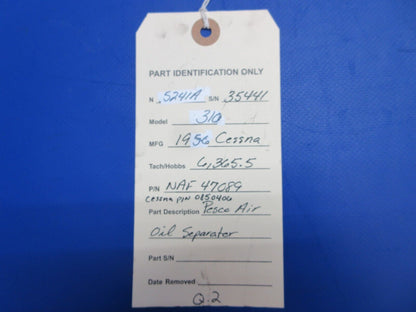 PART IDENTIFICATION ONLY
N 5241A S/N 35441
Model 310
MFG 1956 Cessna
Tach/Hobbs 6,365.5
P/N NAF 47089
Cessna P/N 0850406
Part Description Pesco Air
Oil Separator
Part S/N
Date Removed
Q:2